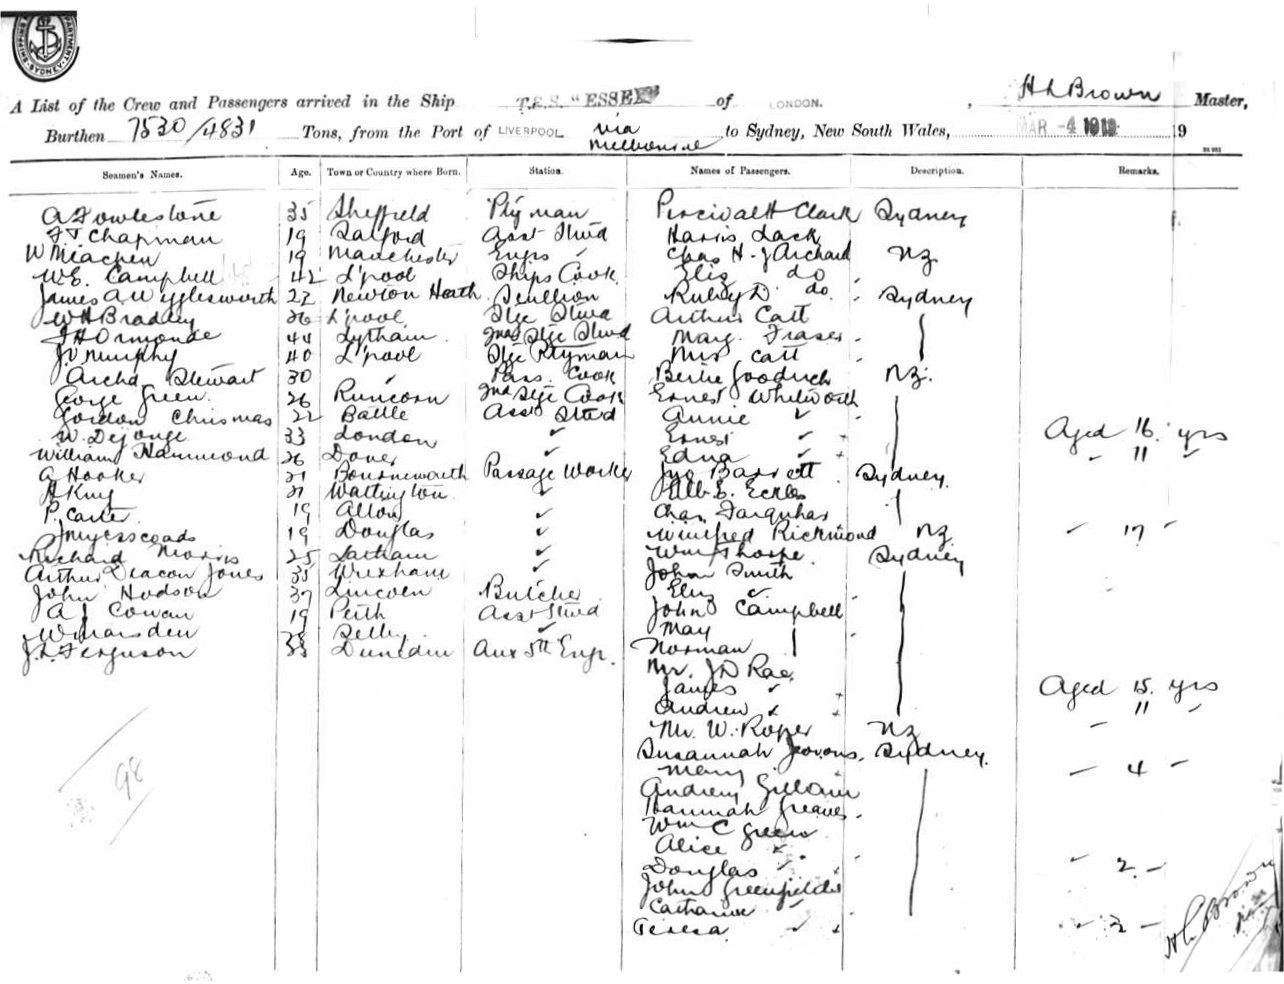 SHIPPING DEPARTMENT SYDNEY
A List of the Crew and Passengers arrived in the Ship T.S.S. "ESSEX" of LONDON. , H L Brown Master,
Burthen 7530/4831 Tons, from the Port of LIVERPOOL via Melbourne to Sydney, New South Wales, MAR -4 1913 19
Seamen's Names. Age. Town or Country where Born. Station. Names of Passengers. Description. Remarks.
A Fowlestone 35 Sheffield Ptyman Percival H Clark Sydney
F T Chapman 19 Salford Asst Stwd Harris Lack
W Meachen 19 Manchester Engrs ✓ Chas H. J Archard NZ
W.E. Campbell 42 L'pool Ships Cook Eliz do
James A Wigglesworth 22 Newton Heath Scullion Ruby D do Sydney
W H Bradley 26 L'pool Stge Stwd Arthur Catt
F H Ormonde 44 Lytham 2nd Stge Stwd Marg. Fraser
J. Murphy 40 L'pool Stge Ptyman Mrs Catt
Archd Stewart 30 ✓ Pass. Cook Bertie Goodrich NZ.
George Green 26 Runcorn 2nd Stge Cook Ernest Whitworth
Gordon Chrismas 22 Battle Asst Stwd Annie ✓
W. Dejonge 33 London ✓ Ernest ✓ + Aged 16 yrs
William Hammond 26 Dover ✓ Edna ✓ + " 11 "
A Hooker 21 Bournemouth Passage Worker Jno Barrett Sydney
H King 21 Watlington ✓ Alb. E. Eckles
P. Carter 19 Alton ✓ Chas Farquhar
J Myerscoads 19 Douglas ✓ Winifred Richmond NZ " 17 "
Richard Morris 25 Latham ✓ Wm Thorpe Sydney
Arthur Deacon Jones 35 Wrexham ✓ John Smith
John Hodson 37 Lincoln Butcher Eliz ✓
A J Cowan 19 Perth Asst Stwd John Campbell
W Marsden Selby ✓ May
J. L. Ferguson 33 Dunedin Aux 5th Engr. Norman
Mr. J D Rae
James ✓ + Aged 15 yrs
Andrew ✓ + " 11 "
Mr. W. Roper NZ
Susannah Jeavons. Sydney.
Mary " 4 "
Andrew Gilla
Hannah Greaves
Wm C Green
Alice ✓
Douglas ✓ + " 2 "
John Greenfields
Catharine ✓
Teresa ✓ +
98
H L Brown